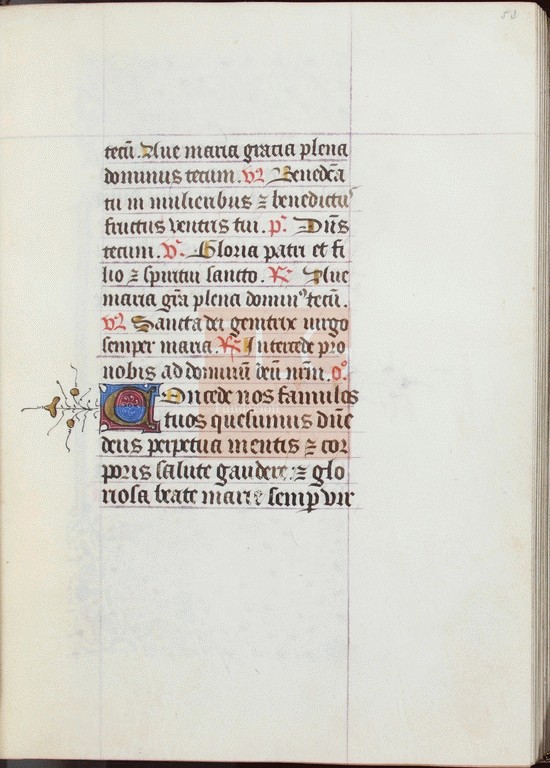 58
tecū. Aue maria gracia plena
dominus tecum. v᷒ Benedc̄a
tu in mulieribus ⁊ benedictu᷒
fructus ventris tui. p᷒. Dn̄s
tecum. v᷒. Gloria patri et fi
lio ⁊ spiritui sancto. R᷒. Aue
maria gr̄a plena domin᷒ tecū.
v᷒ Sancta dei genitrix uirgo
semper maria. R᷒. Intercede pro
nobis ad dominū deū nr̄m. o᷒.
Concede nos famulos
tuos quesumus dn̄e
deus perpetua mentis ⁊ cor
poris salute gaudere: ⁊ glo
riosa beate marie semp̱ vir